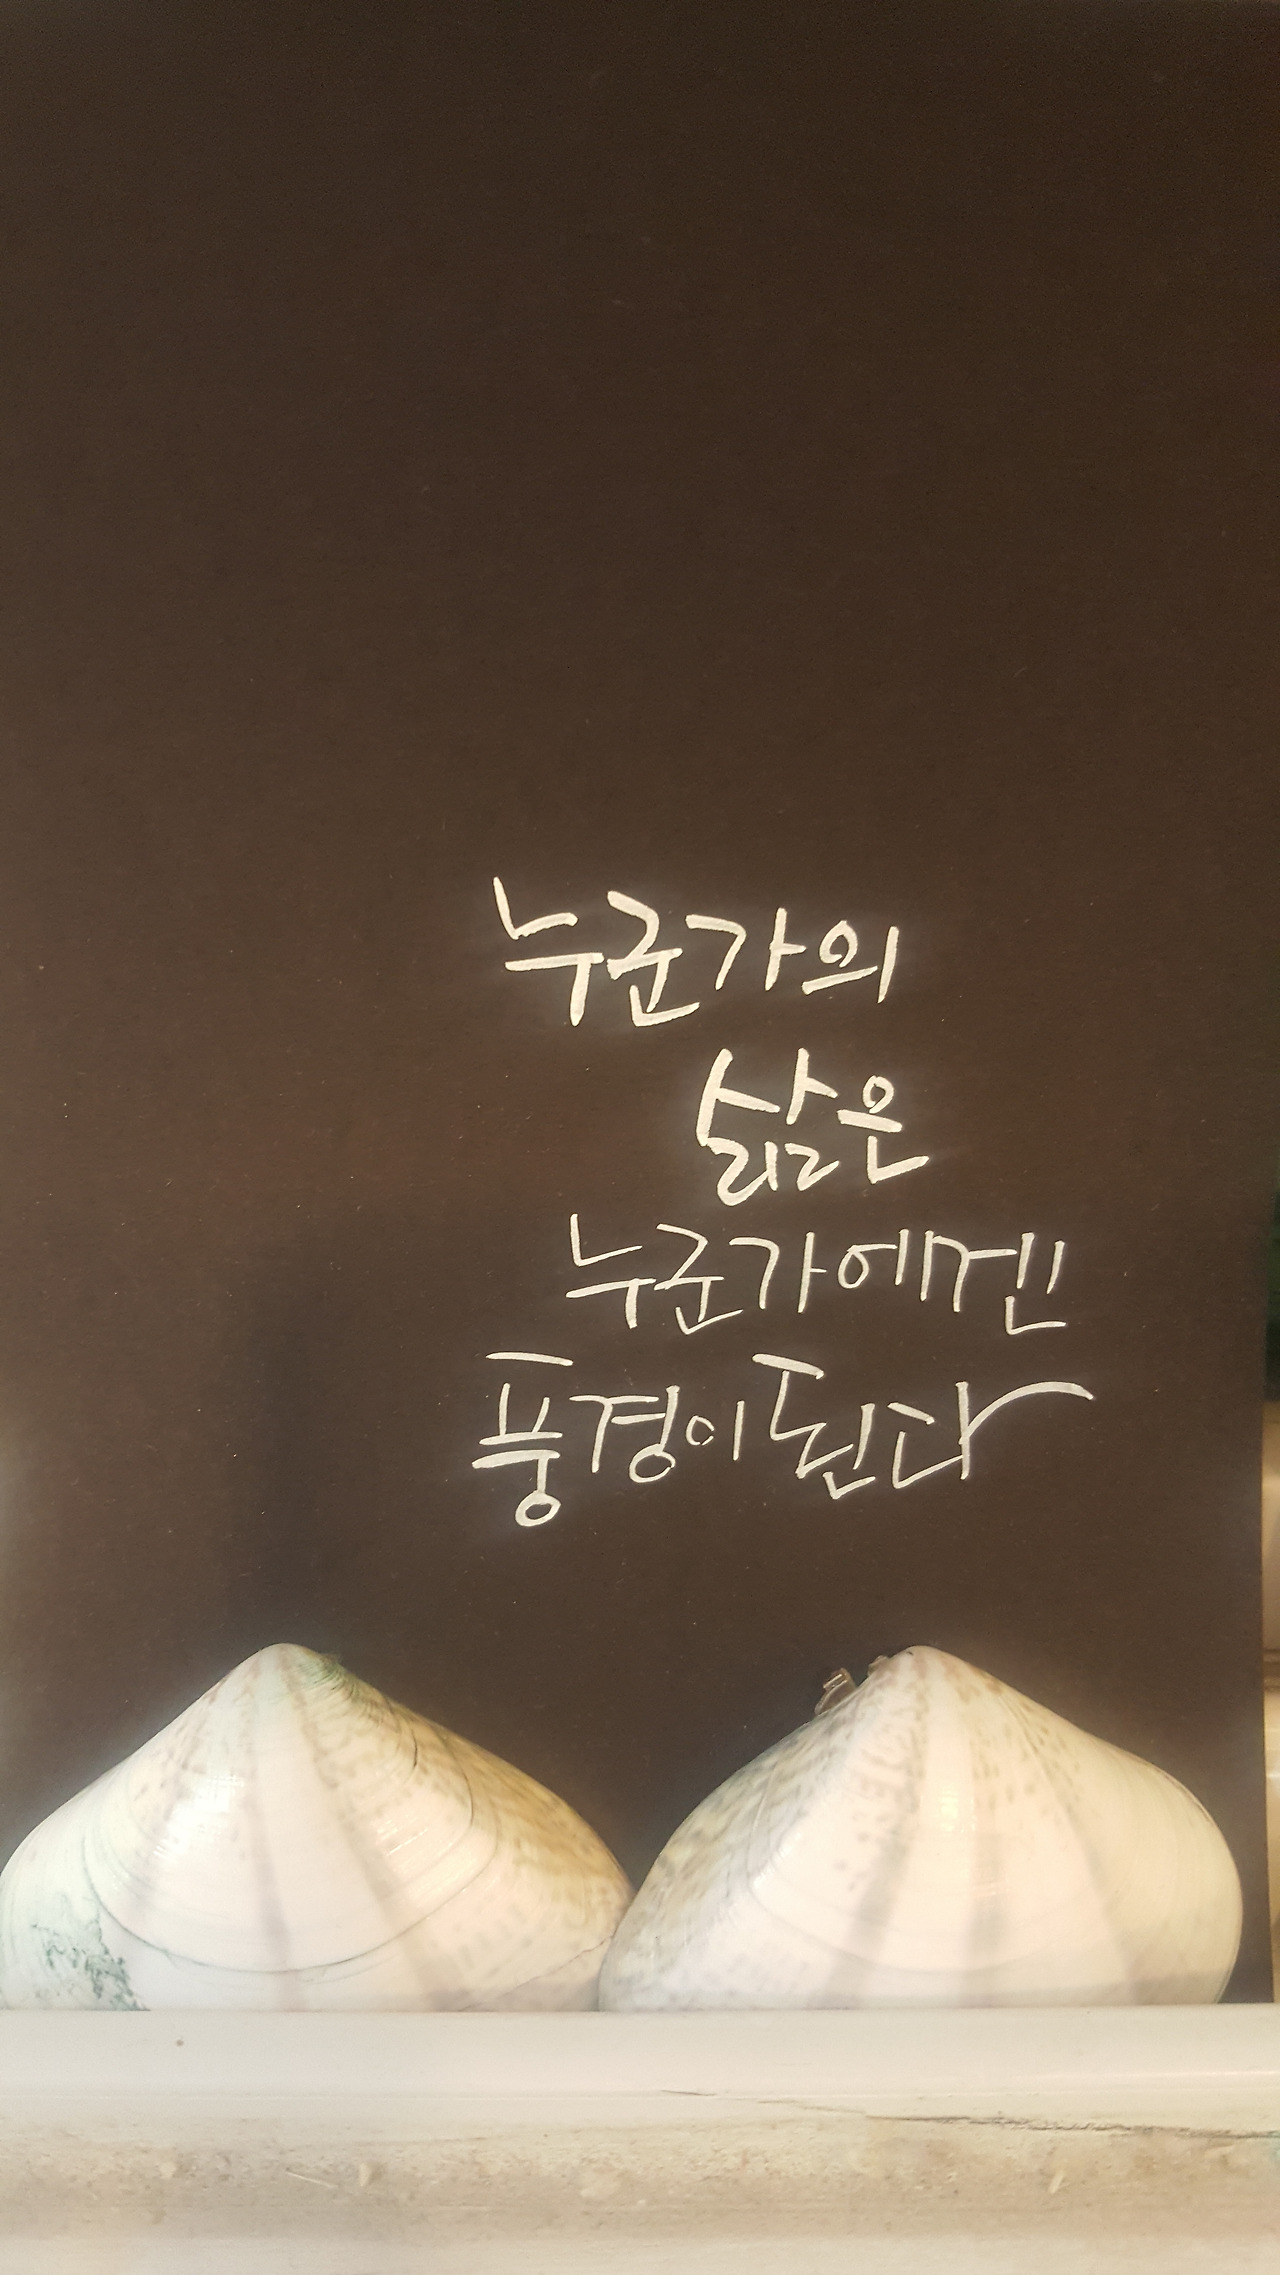 누군가의
삶은
누군가에겐
풍경이 된다